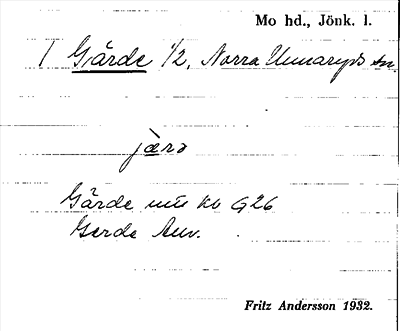 Mo hd., Jönk. l.
/ Gärde 1/2, Norra Unnaryds sn.
jærə
Gärde mtl kb G26
Gerde Anv.
Fritz Andersson 1932.